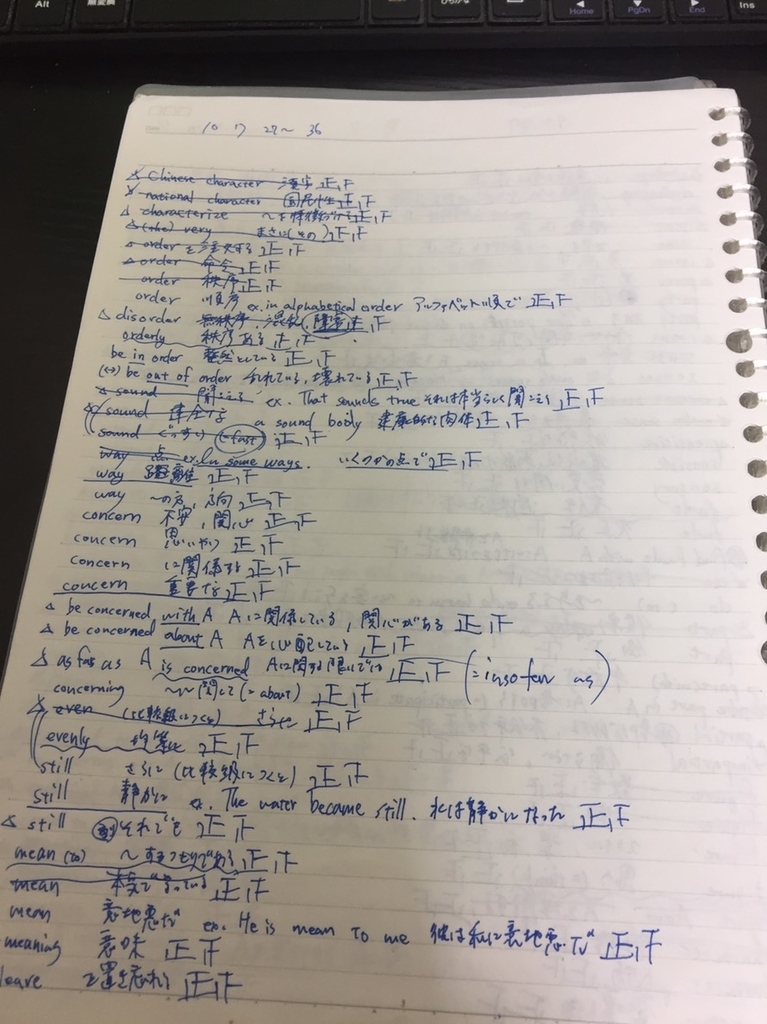 Alt
Home
PgDn
End
Ins
10 7 27〜36
Chinese character 漢字 正下
national character 国民性 正下
△ characterize 〜を特徴づける 正下
△ (the) very まさに(その) 正下
order を注文する 正下
△ order 命令 正下
order 秩序 正下
order 順序 ex. in alphabetical order アルファベット順で 正下
△ disorder 無秩序, 混乱, 障害 正下
orderly 秩序ある 正下
be in order 整然としている 正下
(↔) be out of order 乱れている, 壊れている 正下
△ sound 聞こえる ex. That sounds true それは本当らしく聞こえる 正下
sound 健全な a sound body 健康的な肉体 正下
sound ぐっすり (=fast) 正下
way 点 ex. In some ways. いくつかの点で 正下
way 距離 正下
way 〜の方, 方向 正下
concern 不安, 関心 正下
concern 思いやり 正下
concern に関係する 正下
concern 重要な 正下
△ be concerned with A Aに関係している, 関心がある 正下
△ be concerned about A Aを心配している 正下
△ as far as A is concerned Aに関する限りでは 正下 (= insofar as)
concerning 〜に関して (= about) 正下
△ even (比較級につくと) さらに 正下
evenly 均等に 正下
still さらに (比較級につくと) 正下
still 静かに ex. The water became still. 水は静かになった 正下
△ still 副 それでも 正下
mean (to) 〜するつもりである 正下
mean 本気で言っている 正下
mean 意地悪だ ex. He is mean to me 彼は私に意地悪だ 正下
meaning 意味 正下
leave を置き忘れる 正下